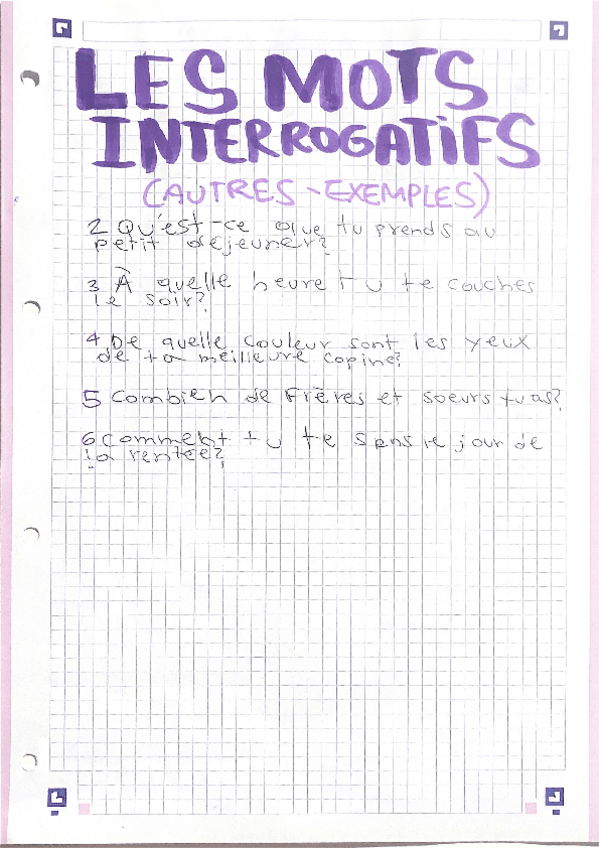 LES MOTS
INTERROGATIFS
(AUTRES-EXEMPLES)
2 Qu'est-ce que tu prends au
petit déjeuner?
3 À quelle heure tu te couches
le soir?
4 De quelle couleur sont les yeux
de ta meilleure copine?
5 Combien de Frères et soeurs tu as?
6 comment tu te sens le jour de
la rentée?